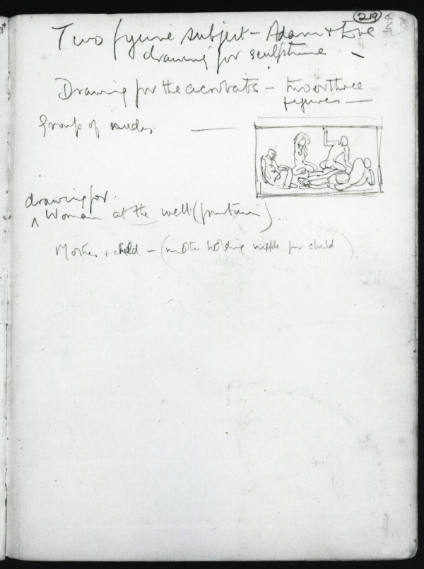 219
Two figure subject - Adam & Eve
drawing for sculpture -
Drawing for the acrobats - two or three
figures -
Group of nudes
drawing for
Woman at the well (fountain).
Mother & child - (mother holding nipple for child)